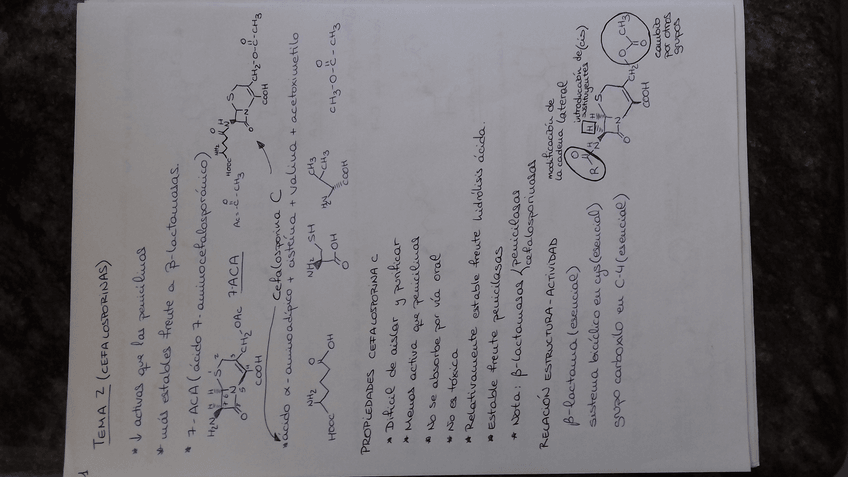 1
TEMA 2 (CEFALOSPORINAS)
* ↓ activas que las penicilinas
* más estables frente a β-lactamasas.
* 7-ACA (ácido 7-aminocefalosporánico)
H₂N H H S
O N CH₂ OAc 7ACA
COOH
Ac = C-CH₃
O
HOOC NH₂ O N H S
O N CH₂-O-C-CH₃
O
COOH
Cefalosporina C
* ácido α-aminoadípico + cisteína + valina + acetoximetilo
HOOC NH₂ O OH
NH₂ SH O OH
H₂N CH₃ CH₃ COOH
CH₃-O-C-CH₃
O
PROPIEDADES CEFALOSPORINA C
* Difícil de aislar y purificar
* Menos activa que penicilinas
* No se absorbe por vía oral
* No es tóxica
* Relativamente estable frente hidrólisis ácida.
* Estable frente penicilasas
* Nota: β-lactamasas / penicilasas
cefalosporinasas
RELACIÓN ESTRUCTURA-ACTIVIDAD
β-lactama (esencial)
sistema bicíclico en cys (esencial)
grupo carboxilo en C-4 (esencial)
modificación de
la cadena lateral
introducción de (cis)
sustituyentes
R O N H H H S
O N CH₂ O CH₃
O
COOH
cambio
por otros
grupos